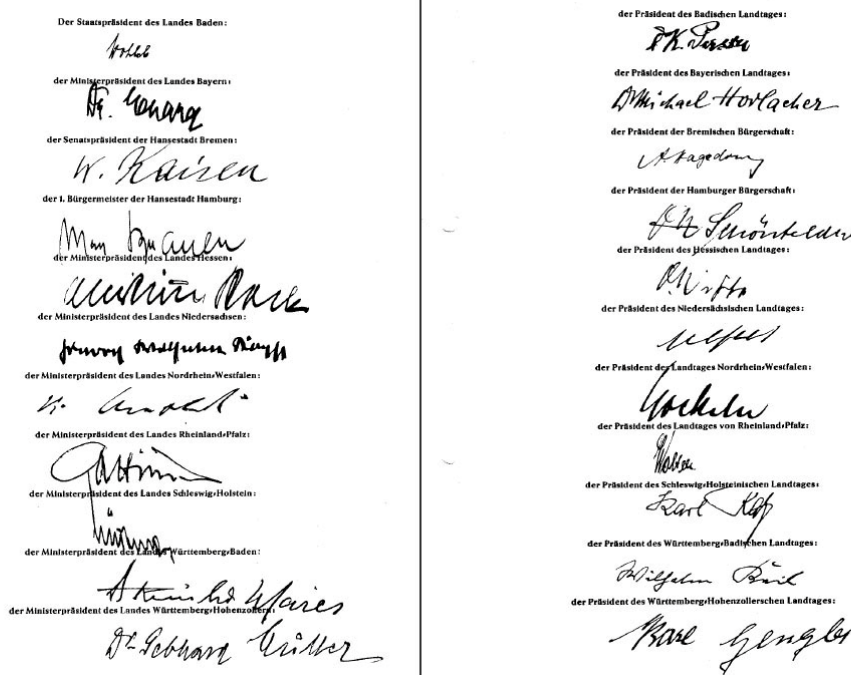 Der Staatspräsident des Landes Baden:
Wohleb
der Ministerpräsident des Landes Bayern:
Dr. Ehard
der Senatspräsident der Hansestadt Bremen:
W. Kaisen
der 1. Bürgermeister der Hansestadt Hamburg:
Max Brauer
der Ministerpräsident des Landes Hessen:
Christian Stock
der Ministerpräsident des Landes Niedersachsen:
Hinrich Wilhelm Kopf
der Ministerpräsident des Landes Nordrhein-Westfalen:
K. Arnold
der Ministerpräsident des Landes Rheinland-Pfalz:
Altmeier
der Ministerpräsident des Landes Schleswig-Holstein:
Lüdemann
der Ministerpräsident des Landes Württemberg-Baden:
Reinhold Maier
der Ministerpräsident des Landes Württemberg-Hohenzollern:
Dr. Gebhard Müller
der Präsident des Badischen Landtages:
der Präsident des Bayerischen Landtages:
Dr Michael Horlacher
der Präsident der Bremischen Bürgerschaft:
A. Hagedorn
der Präsident der Hamburger Bürgerschaft:
Schönfelder
der Präsident des Hessischen Landtages:
O. Witte
der Präsident des Niedersächsischen Landtages:
Olfers
der Präsident des Landtages Nordrhein-Westfalen:
Gockeln
der Präsident des Landtages von Rheinland-Pfalz:
Wolters
der Präsident des Schleswig-Holsteinischen Landtages:
Karl
der Präsident des Württemberg-Badischen Landtages:
Wilhelm Keil
der Präsident des Württemberg-Hohenzollerschen Landtages:
Karl Gengler